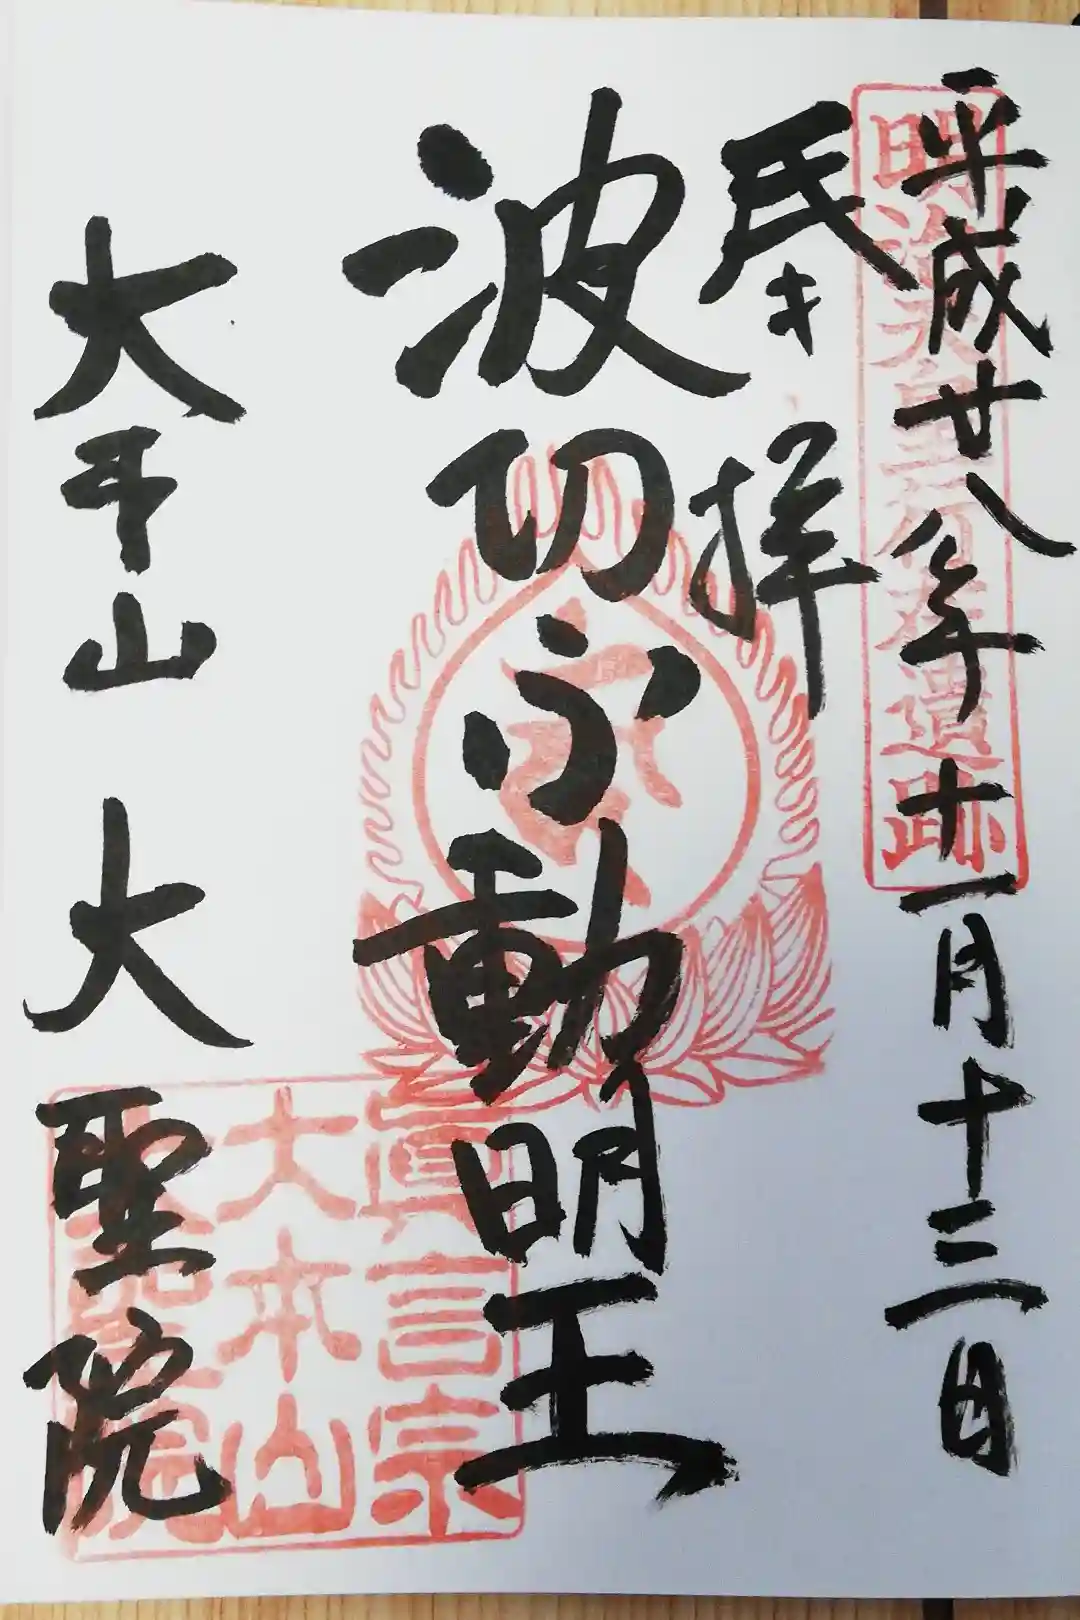 平成廿八年十一月十三日
明治天皇行在遺跡
奉拝
波切不動明王
大本山 大聖院
眞言宗
大本山
大聖院